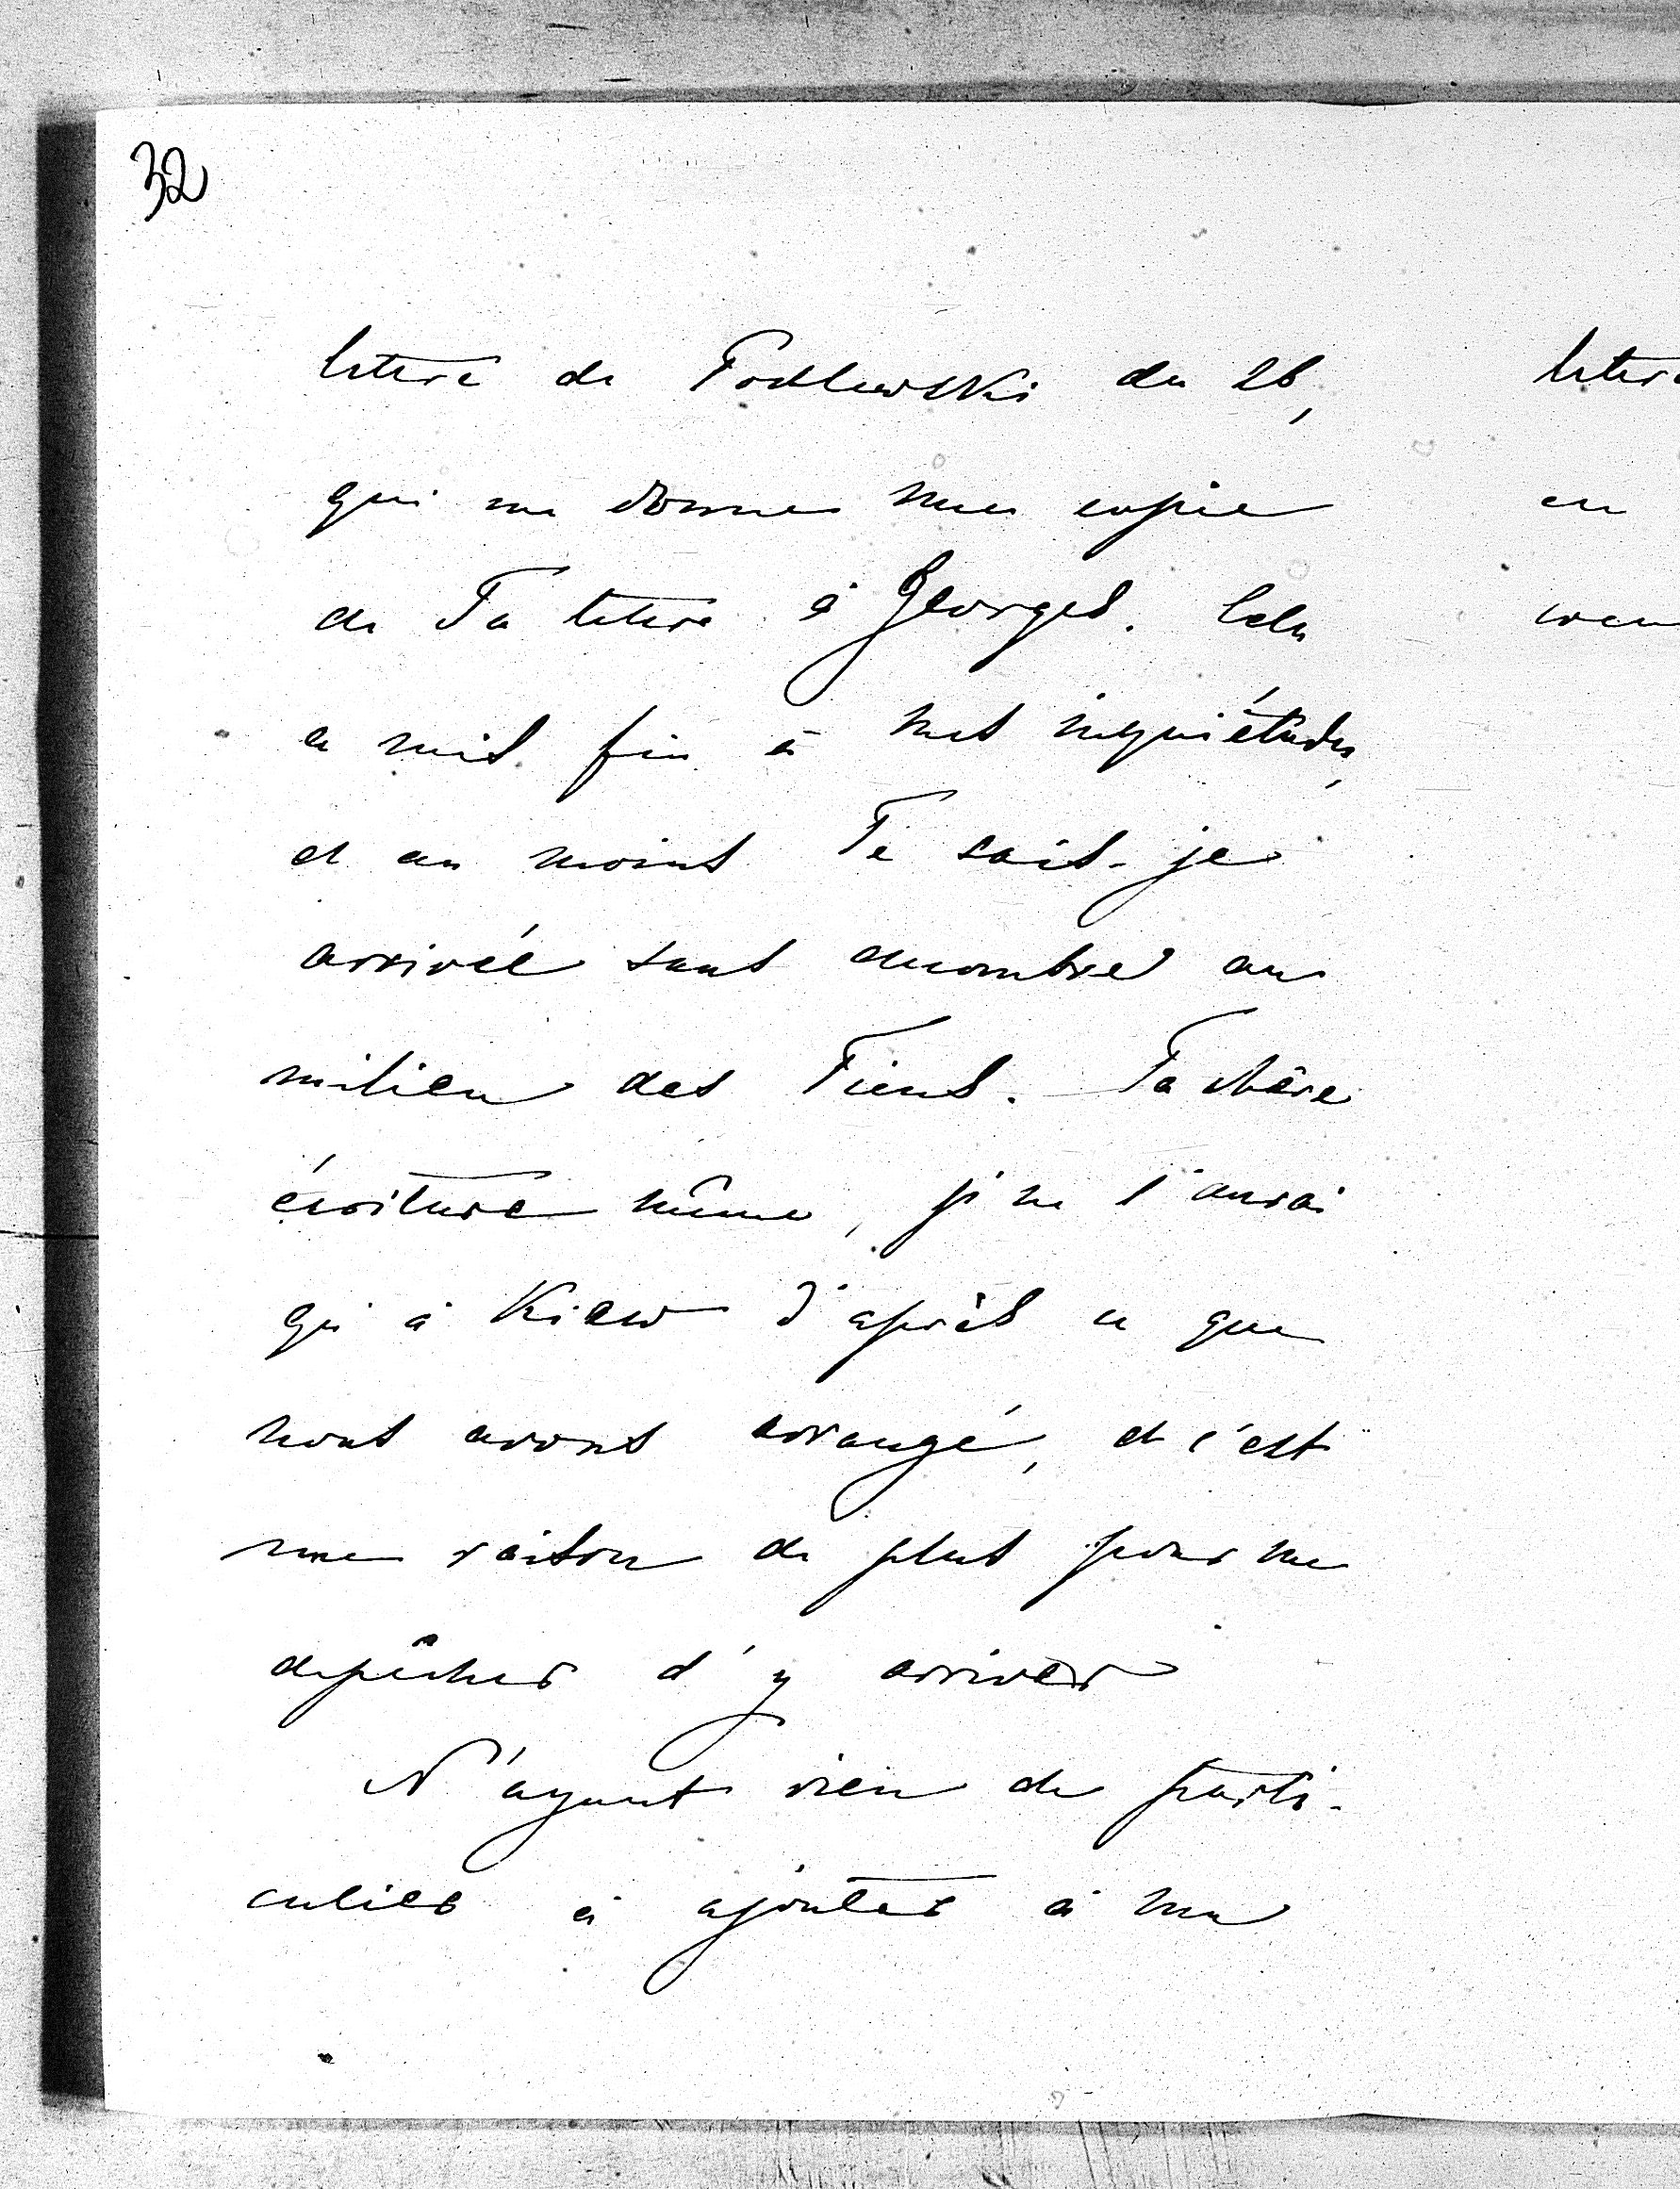 32
lettre de Podlewski du 26,
qui me donne une copie
de Ta lettre à Georges. Cela
a mis fin à mes inquiétudes,
et au moins Te sais-je
arrivée sans encombre au
milieu des Tiens. Ta chère
écriture même, je ne l'aurai
qu'à Kiew d'après ce que
nous avons arrangé, et c'est
une raison de plus pour me
dépêcher d'y arriver
N'ayant rien de parti-
culier à ajouter à ma